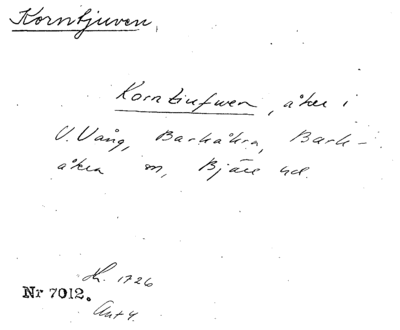 Korntjuven.
Korntiufwen, åker i
V. Vång, Barkåkra, Bark-
åkra sn, Bjäre hd.
H. 1726
Nr 7012.
Akt 4.